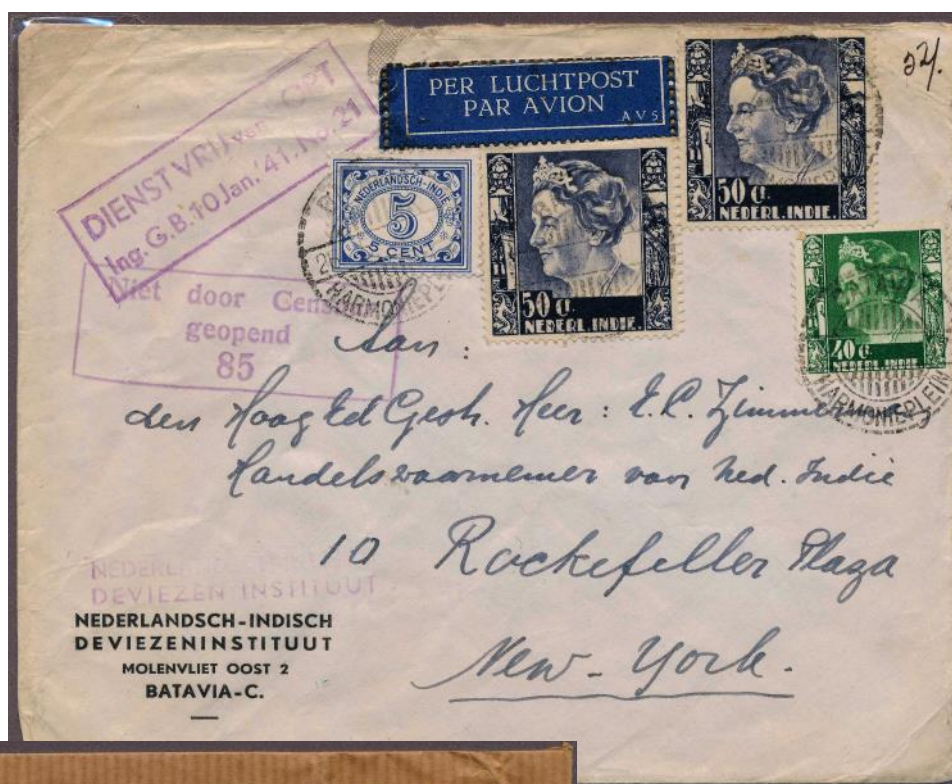 DIENST VRIJ van PORT
Ing. G.B. 10 Jan. '41. No. 21
Niet door
geopend
85
PER LUCHTPOST
PAR AVION
AVS
NEDERLANDSCH-INDIE
5
5 CENT
50 ct.
NEDERL. INDIE.
50 ct.
NEDERL. INDIE.
40 ct.
NEDERL. INDIE.
HARMONIEPLEIN
Aan:
den Hoog Ed Gestr. Heer: E.C.
Handelswaarnemer voor Ned. Indië
10 Rockefeller Plaza
New-York.
DEVIEZEN INSTITUUT
NEDERLANDSCH-INDISCH
DEVIEZENINSTITUUT
MOLENVLIET OOST 2
BATAVIA-C.